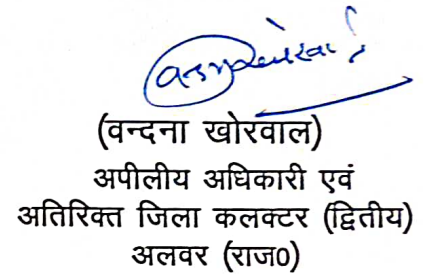 (वन्दना खोरवाल)
अपीलीय अधिकारी एवं
अतिरिक्त जिला कलक्टर (द्वितीय)
अलवर (राज0)